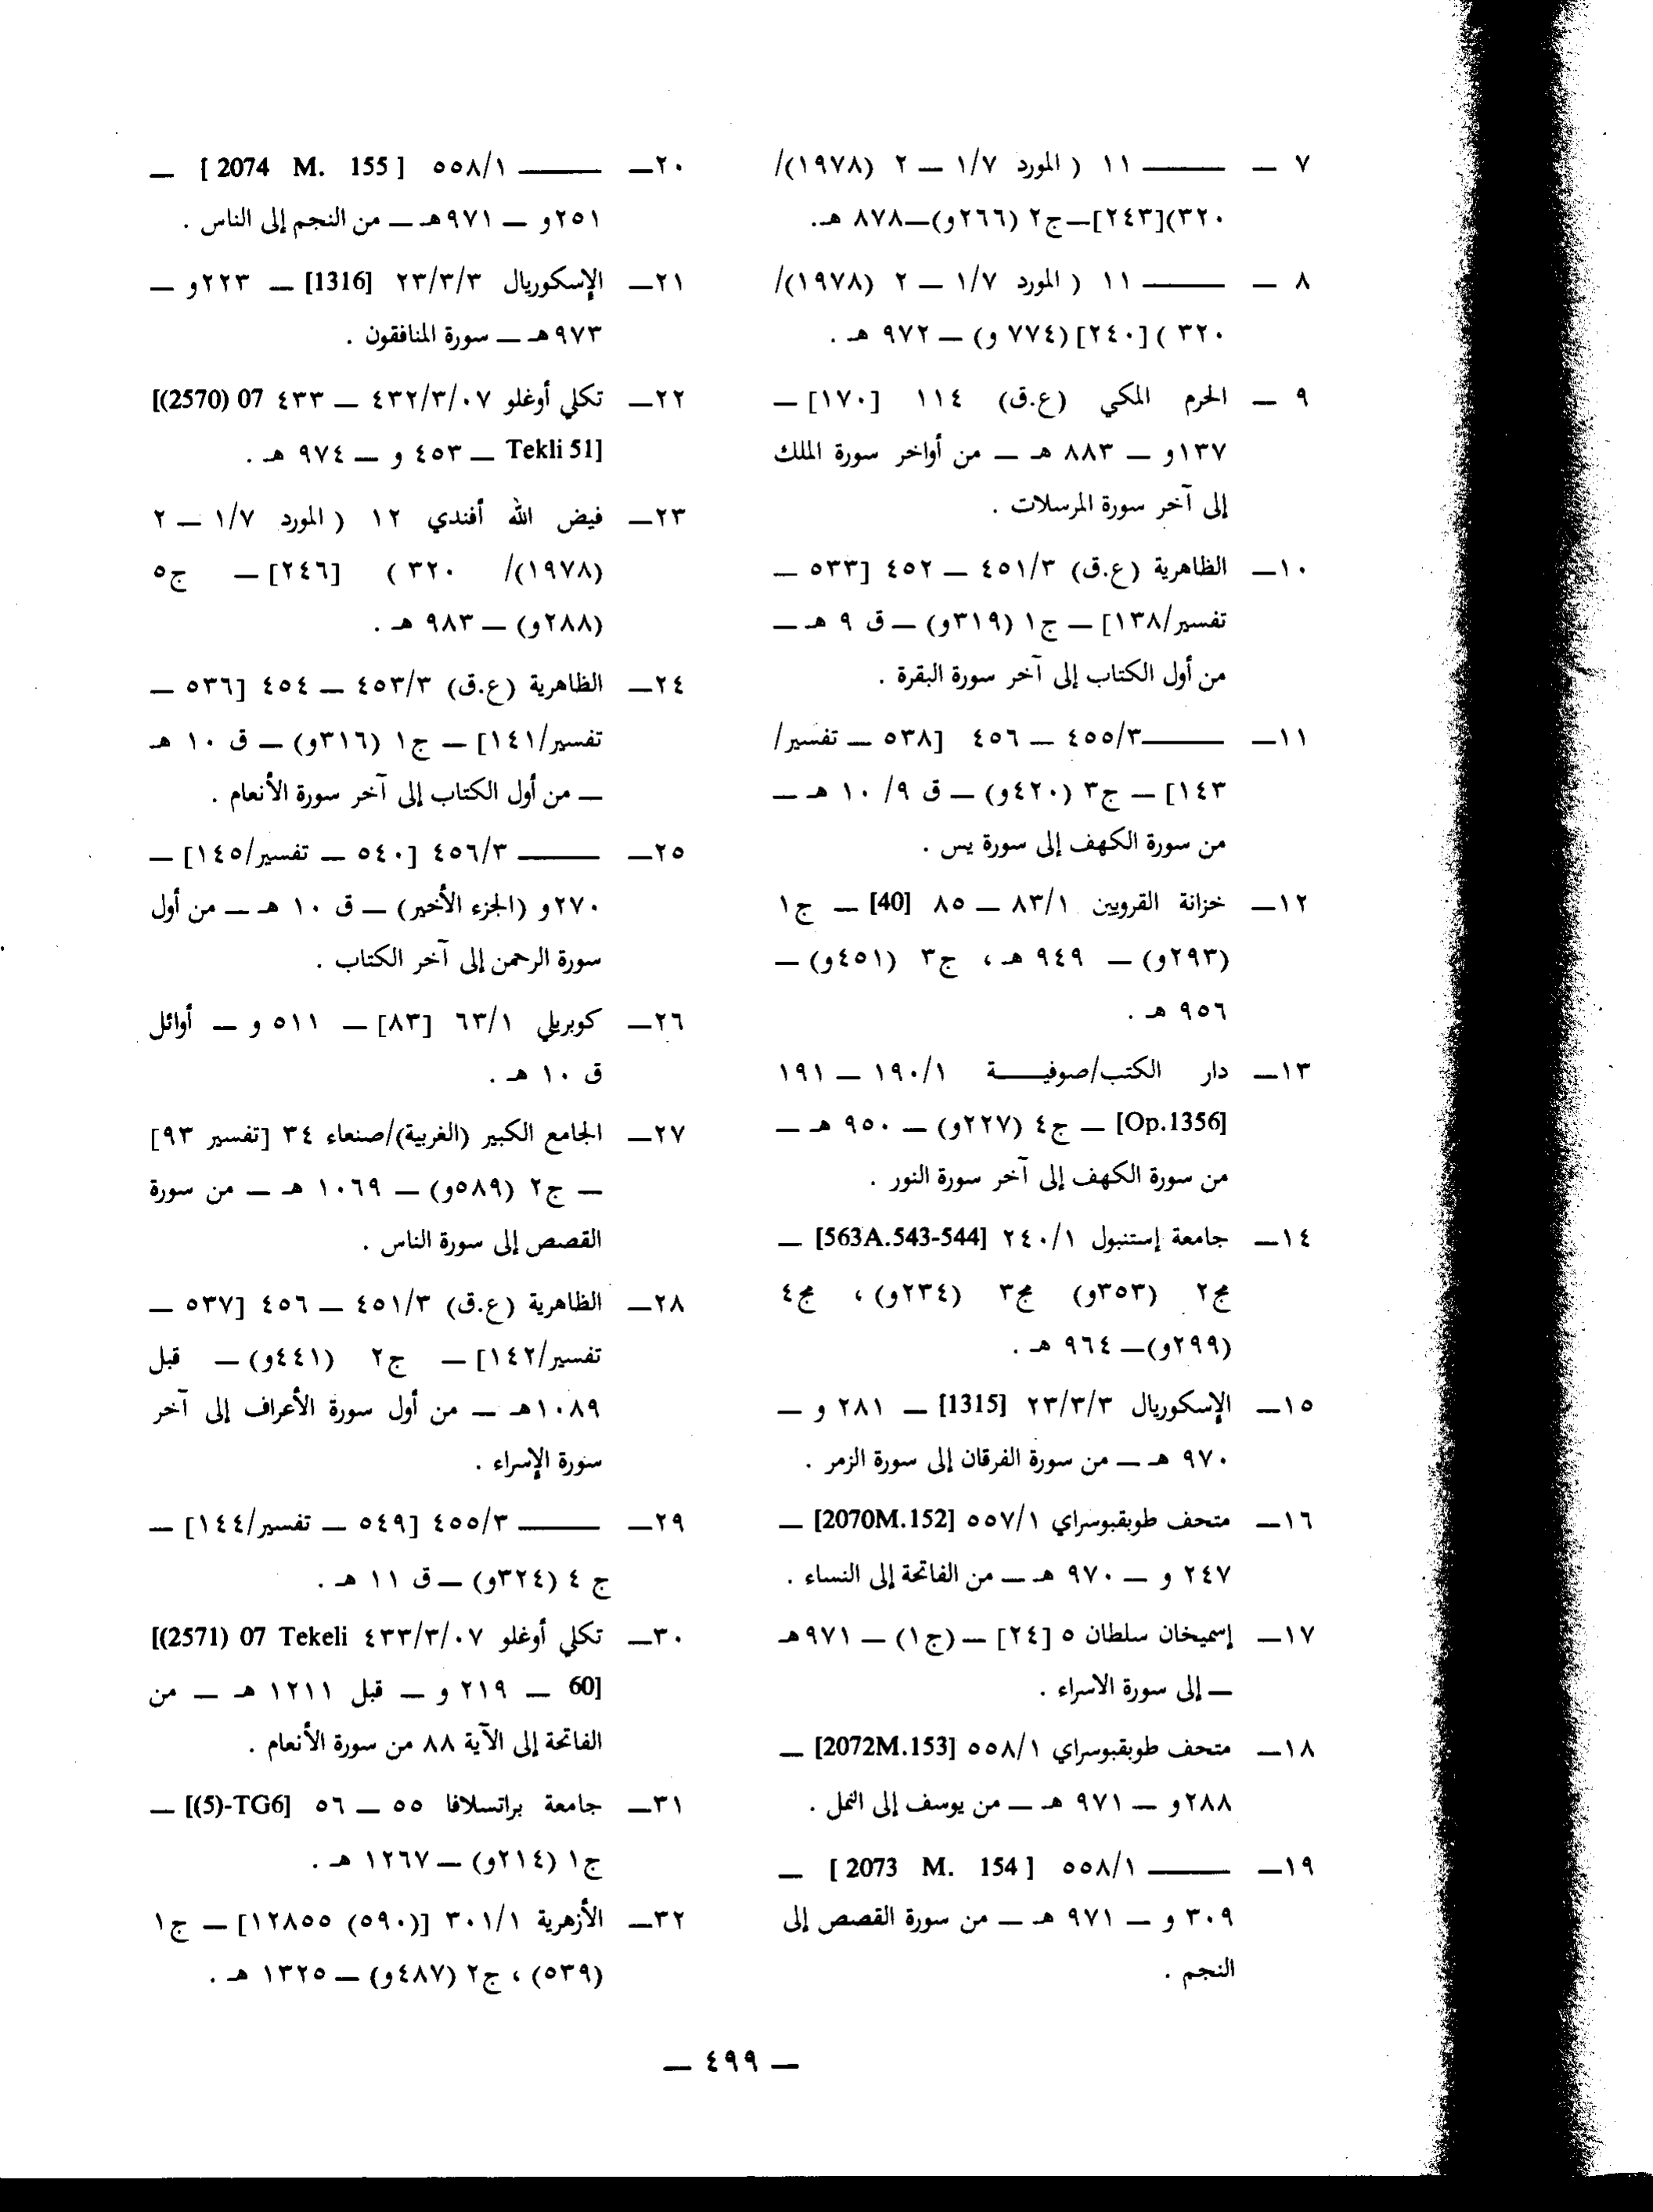 ٧ — ——— ١١ ( المورد ١/٧ — ٢ (١٩٧٨)/
٣٢٠)[٢٤٣]—ج٢ (٢٦٦و)—٨٧٨ هـ.
٨ — ——— ١١ ( المورد ١/٧ — ٢ (١٩٧٨)/
٣٢٠ )[٢٤٠](٧٧٤ و) — ٩٧٢ هـ .
٩ — الحرم المكي (ع.ق) ١١٤ [١٧٠] —
١٣٧و — ٨٨٣ هـ — من أواخر سورة الملك
إلى آخر سورة المرسلات .
١٠— الظاهرية (ع.ق) ٤٥١/٣ — ٤٥٢ [٥٣٣ —
تفسير/١٣٨] — ج١ (٣١٩و) — ق ٩ هـ —
من أول الكتاب إلى آخر سورة البقرة .
١١— ———٤٥٥/٣ — ٤٥٦ [٥٣٨ — تفسير/
١٤٣] — ج٣ (٤٢٠و) — ق ٩/ ١٠ هـ —
من سورة الكهف إلى سورة يس .
١٢— خزانة القرويين ٨٣/١ — ٨٥ [40] — ج١
(٢٩٣و) — ٩٤٩ هـ ، ج٣ (٤٥١و) —
٩٥٦ هـ .
١٣— دار الكتب/صوفيـــة ١٩٠/١ — ١٩١
[Op.1356] — ج٤ (٢٢٧و) — ٩٥٠ هـ —
من سورة الكهف إلى آخر سورة النور .
١٤— جامعة إستنبول ٢٤٠/١ [563A.543-544] —
مج٢ (٣٥٣و) مج٣ (٢٣٤و) ، مج٤
(٢٩٩و)— ٩٦٤ هـ .
١٥— الإسكوريال ٢٣/٣/٣ [1315] — ٢٨١ و —
٩٧٠ هـ — من سورة الفرقان إلى سورة الزمر .
١٦— متحف طوبقبوسراي ٥٥٧/١ [2070M.152] —
٢٤٧ و — ٩٧٠ هـ — من الفاتحة إلى النساء .
١٧— إسميخان سلطان ٥ [٢٤] — (ج١) — ٩٧١هـ
— إلى سورة الاسراء .
١٨— متحف طوبقبوسراي ٥٥٨/١ [2072M.153] —
٢٨٨و — ٩٧١ هـ — من يوسف إلى النمل .
١٩— ——— ٥٥٨/١ [ 2073 M. 154 ] —
٣٠٩ و — ٩٧١ هـ — من سورة القصص إلى
النجم .
٢٠— ——— ٥٥٨/١ [ 2074 M. 155 ] —
٢٥١و — ٩٧١هـ — من النجم إلى الناس .
٢١— الإسكوريال ٢٣/٣/٣ [1316] — ٢٢٣و —
٩٧٣هـ — سورة المنافقون .
٢٢— تكلي أوغلو ٤٣٢/٣/٠٧ — ٤٣٣ 07 (2570)]
[Tekli 51 — ٤٥٣ و — ٩٧٤ هـ .
٢٣— فيض الله أفندي ١٢ ( المورد ١/٧ — ٢
(١٩٧٨)/ ٣٢٠ ) [٢٤٦] — ج٥
(٢٨٨و) — ٩٨٣ هـ .
٢٤— الظاهرية (ع.ق) ٤٥٣/٣ — ٤٥٤ [٥٣٦ —
تفسير/١٤١] — ج١ (٣١٦و) — ق ١٠ هـ
— من أول الكتاب إلى آخر سورة الأنعام .
٢٥— ——— ٤٥٦/٣ [٥٤٠ — تفسير/١٤٥] —
٢٧٠و (الجزء الأخير) — ق ١٠ هـ — من أول
سورة الرحمن إلى آخر الكتاب .
٢٦— كوبريلي ٦٣/١ [٨٣] — ٥١١ و — أوائل
ق ١٠ هـ .
٢٧— الجامع الكبير (الغربية)/صنعاء ٣٤ [تفسير ٩٣]
— ج٢ (٥٨٩و) — ١٠٦٩ هـ — من سورة
القصص إلى سورة الناس .
٢٨— الظاهرية (ع.ق) ٤٥١/٣ — ٤٥٦ [٥٣٧ —
تفسير/١٤٢] — ج٢ (٤٤١و) — قبل
١٠٨٩هـ — من أول سورة الأعراف إلى آخر
سورة الإسراء .
٢٩— ——— ٤٥٥/٣ [٥٤٩ — تفسير/١٤٤] —
ج ٤ (٣٢٤و) — ق ١١ هـ .
٣٠— تكلي أوغلو ٤٣٣/٣/٠٧ 07 Tekeli (2571)]
[60 — ٢١٩ و — قبل ١٢١١ هـ — من
الفاتحة إلى الآية ٨٨ من سورة الأنعام .
٣١— جامعة براتسلافا ٥٥ — ٥٦ [TG6-(5)] —
ج١ (٢١٤و) — ١٢٦٧ هـ .
٣٢— الأزهرية ٣٠١/١ [(٥٩٠) ١٢٨٥٥] — ج١
(٥٣٩) ، ج٢ (٤٨٧و) — ١٣٢٥ هـ .
— ٤٩٩ —